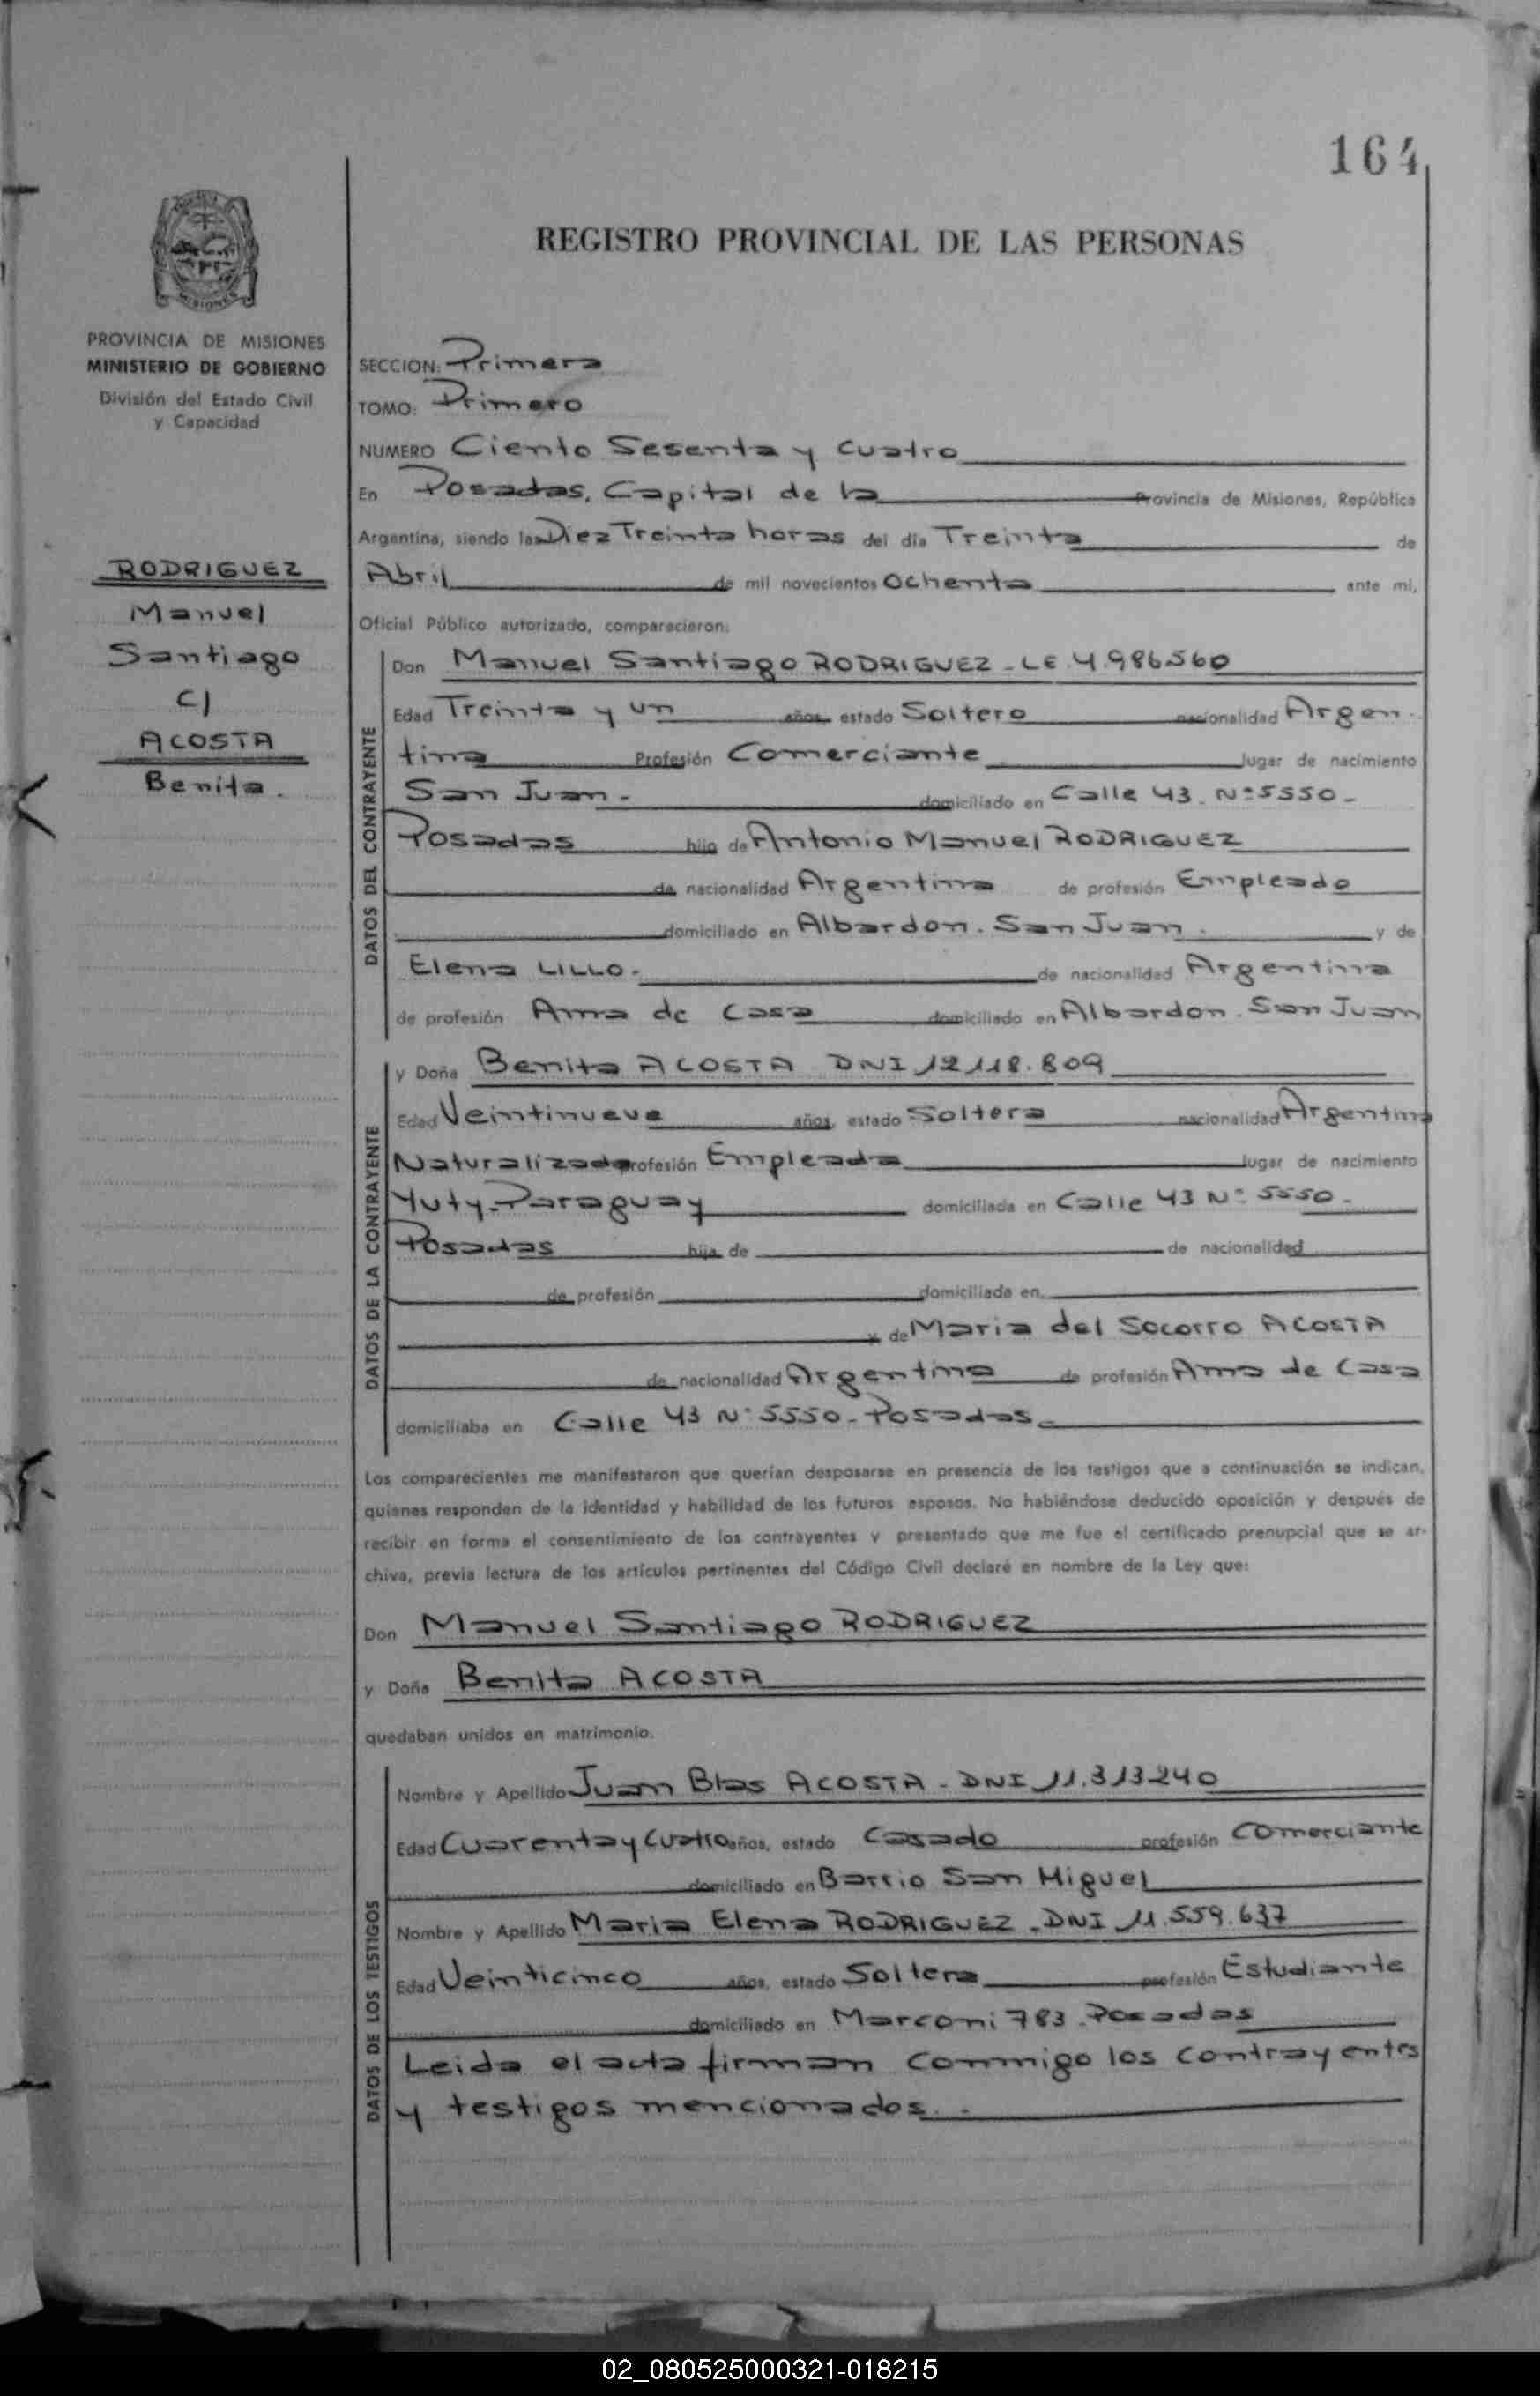 164
REGISTRO PROVINCIAL DE LAS PERSONAS
MISIONES
PROVINCIA DE MISIONES
MINISTERIO DE GOBIERNO
División del Estado Civil
y Capacidad
RODRIGUEZ
Manuel
Santiago
C/
ACOSTA
Benita.
SECCION: Primera
TOMO: Primero
NUMERO Ciento Sesenta y Cuatro
En Posadas, Capital de la Provincia de Misiones, República
Argentina, siendo las Diez Treinta horas del día Treinta de
Abril de mil novecientos Ochenta ante mi,
Oficial Público autorizado, comparecieron:
DATOS DEL CONTRAYENTE
Don Manuel Santiago RODRIGUEZ - LE 4.986.560
Edad Treinta y un años estado Soltero nacionalidad Argen-
tina Profesión Comerciante lugar de nacimiento
San Juan - domiciliado en Calle 43. Nº 5550 -
Posadas hijo de Antonio Manuel RODRIGUEZ
de nacionalidad Argentina de profesión Empleado
domiciliado en Albardon. San Juan. y de
Elena LILLO. de nacionalidad Argentina
de profesión Ama de Casa domiciliado en Albardon. San Juan
DATOS DE LA CONTRAYENTE
y Doña Benita ACOSTA DNI 12.118.809
Edad Veintinueve años, estado Soltera nacionalidad Argentina
Naturalizada profesión Empleada lugar de nacimiento
Yuty - Paraguay domiciliada en Calle 43 Nº 5550 -
Posadas hija de de nacionalidad
de profesión domiciliado en
y de Maria del Socorro ACOSTA
de nacionalidad Argentina de profesión Ama de Casa
domiciliaba en Calle 43 Nº 5550 - Posadas -
Los comparecientes me manifestaron que querían desposarse en presencia de los testigos que a continuación se indican,
quienes responden de la identidad y habilidad de los futuros esposos. No habiéndose deducido oposición y después de
recibir en forma el consentimiento de los contrayentes y presentado que me fue el certificado prenupcial que se ar-
chiva, previa lectura de los artículos pertinentes del Código Civil declaré en nombre de la Ley que:
Don Manuel Santiago RODRIGUEZ
y Doña Benita ACOSTA
quedaban unidos en matrimonio.
DATOS DE LOS TESTIGOS
Nombre y Apellido Juan Blas ACOSTA - DNI 11.313.240
Edad Cuarenta y Cuatro años, estado Casado profesión Comerciante
domiciliado en Barrio San Miguel
Nombre y Apellido Maria Elena RODRIGUEZ - DNI 11.559.637
Edad Veinticinco años, estado Soltera profesión Estudiante
domiciliado en Marconi 783 - Posadas
Leida el acta firman conmigo los contrayentes
y testigos mencionados. -
02_080525000321-018215